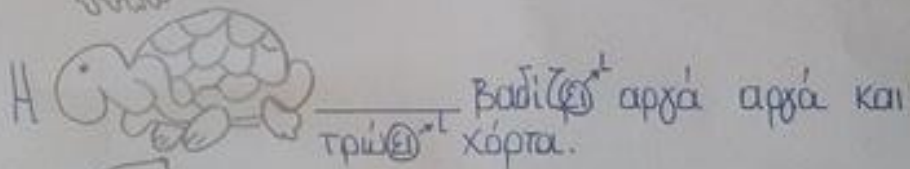 Η ________ βαδίζει ι αργά αργά και
τρώει ι χόρτα.